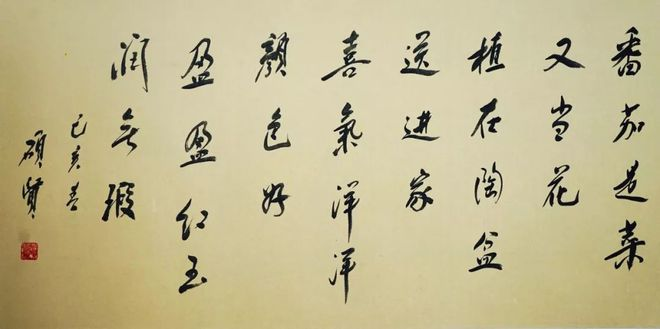 番茄是菜
又当花
植在陶盆
送進家
喜氣洋洋
顏色好
盈盈红玉
润无瑕
己亥春
碩賢